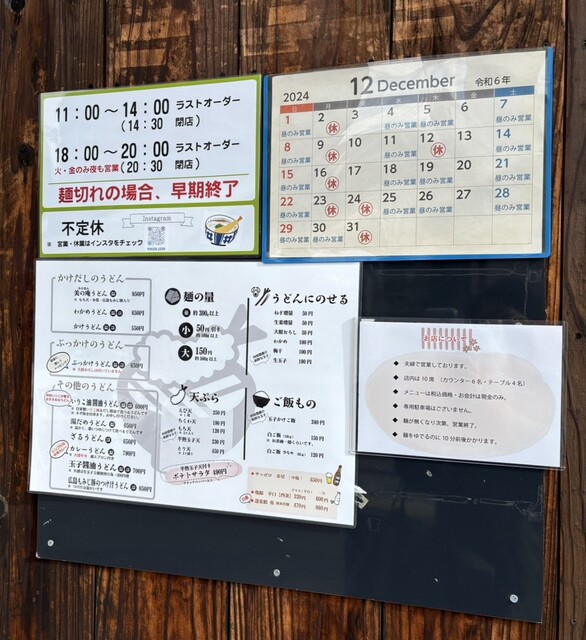 11：00～14：00 ラストオーダー
(14：30 閉店)
18：00～20：00 ラストオーダー
火・金のみ夜も営業 (20：30 閉店)
麺切れの場合、早期終了
不定休
Instagram
※ 営業・休業はインスタをチェック
2024 12 December 令和6年
日 月 火 水 木 金 土
1 2 3 4 5 6 7
昼のみ営業 休 昼のみ営業 昼のみ営業 昼のみ営業
8 9 10 11 12 13 14
昼のみ営業 休 昼のみ営業 休 昼のみ営業
15 16 17 18 19 20 21
昼のみ営業 休 昼のみ営業 昼のみ営業 昼のみ営業
22 23 24 25 26 27 28
昼のみ営業 休 休 昼のみ営業 昼のみ営業 昼のみ営業
29 30 31
昼のみ営業 昼のみ営業 休
かけだしのうどん
わかめうどん 650円
かけうどん 550円
ぶっかけうどん
ぶっかけうどん 650円
その他のうどん
いりこ油醤油うどん 600円
湯だめうどん 550円
ざるうどん 650円
カレーうどん 900円
玉子醤油うどん 700円
広島もみじ豚のつけ汁うどん 950円
麺の量
並 約300g以上
小 50円引き
大 150円
天ぷら
えび天 250円
ちくわ天 190円
もち天 120円
半熟玉子天 230円
とり天 450円
半熟玉子天付き
ポテトサラダ 490円
うどんにのせる
ねぎ増量 50円
生姜増量 50円
大根おろし 50円
わかめ 100円
梅干 100円
生玉子 100円
ご飯もの
玉子かけご飯 300円
白ご飯 150円
白ご飯 少なめ 120円
お店について
◆ 夫婦で営業しております。
◆ 店内は10席 （カウンター6名・テーブル4名）
◆ メニューは税込価格・お会計は現金のみ。
◆ 専用駐車場はございません。
◆ 麺が無くなり次第、営業終了。
◆ 麺をゆでるのに10分前後かかります。